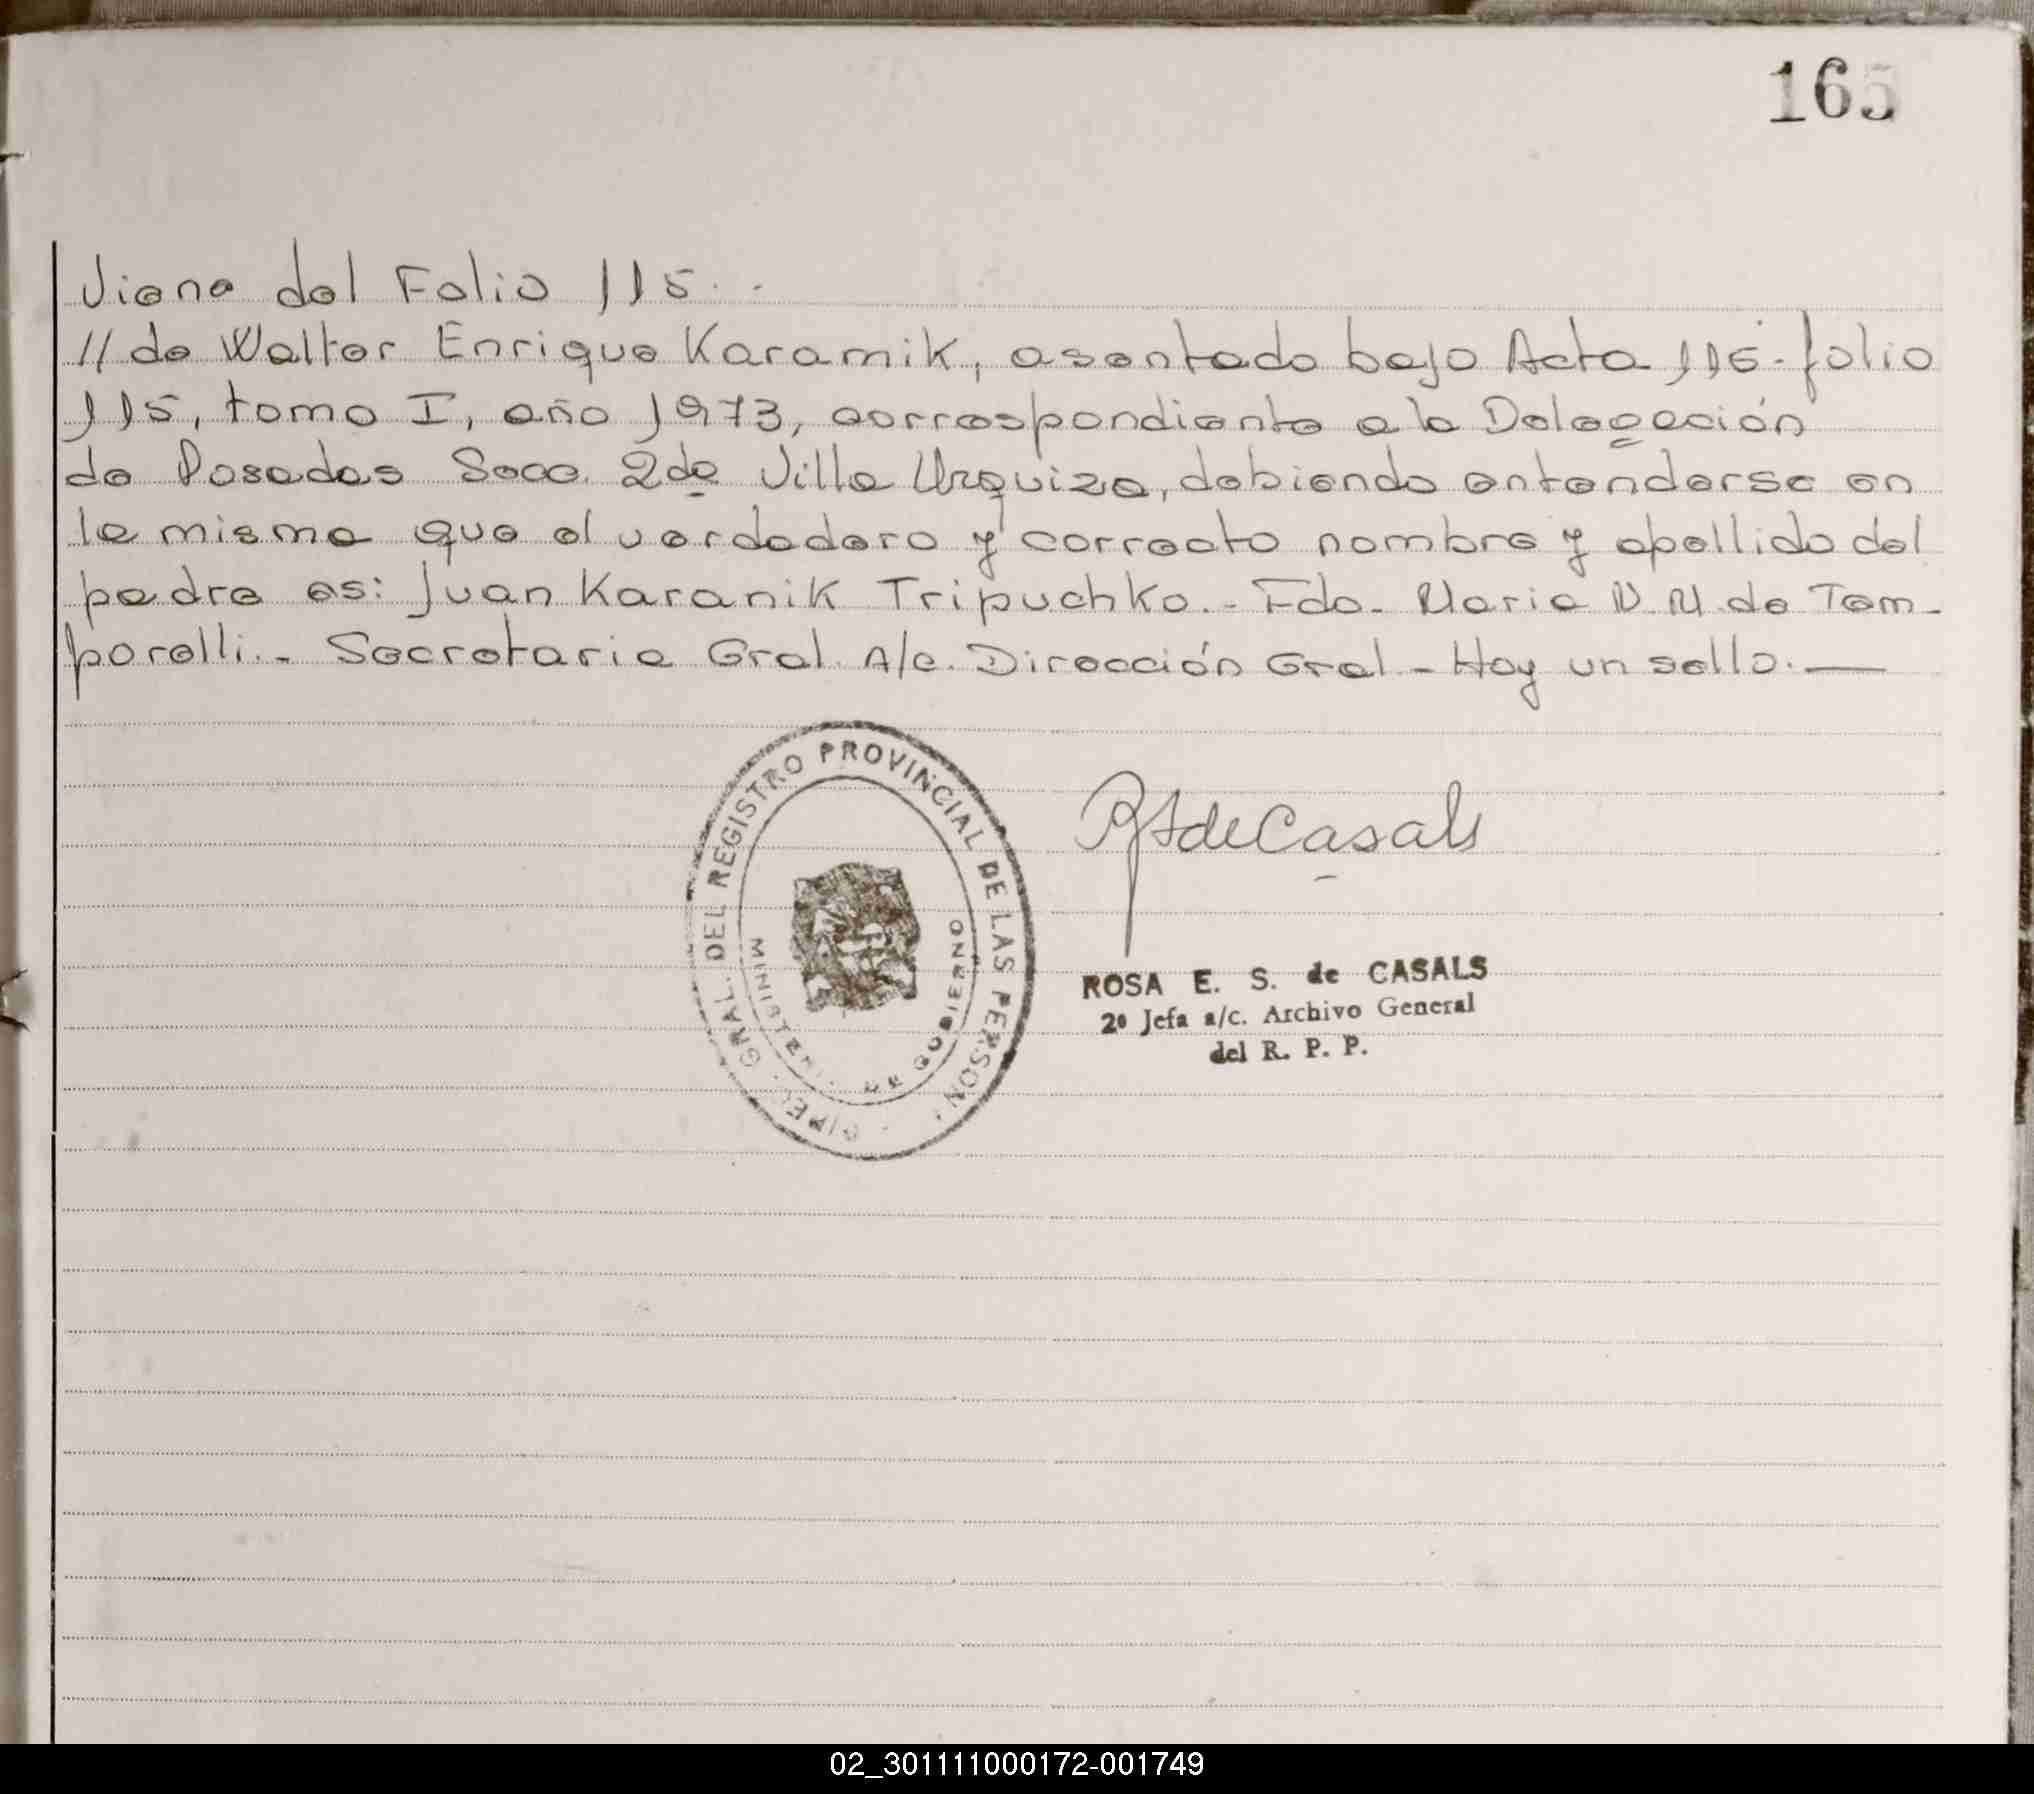 165
Viene del Folio 115..
// de Walter Enrique Karamik, asentado bajo Acta 115-folio
115, tomo I, año 1973, correspondiente a la Delegación
de Posadas Secc. 2da Villa Urquiza, debiendo entenderse en
la misma que el verdadero y correcto nombre y apellido del
padre es: Juan Karanik Tripuchko.- Fdo- Maria N.M. de Tem-
porelli.- Secretaria Gral. A/c. Dirección Gral - Hay un sello.—
DIREC. GRAL. DEL REGISTRO PROVINCIAL DE LAS PERSON.
MINISTERIO DE GOBIERNO
RSdeCasals
ROSA E. S. de CASALS
2º Jefa a/c. Archivo General
del R. P. P.
02_301111000172-001749